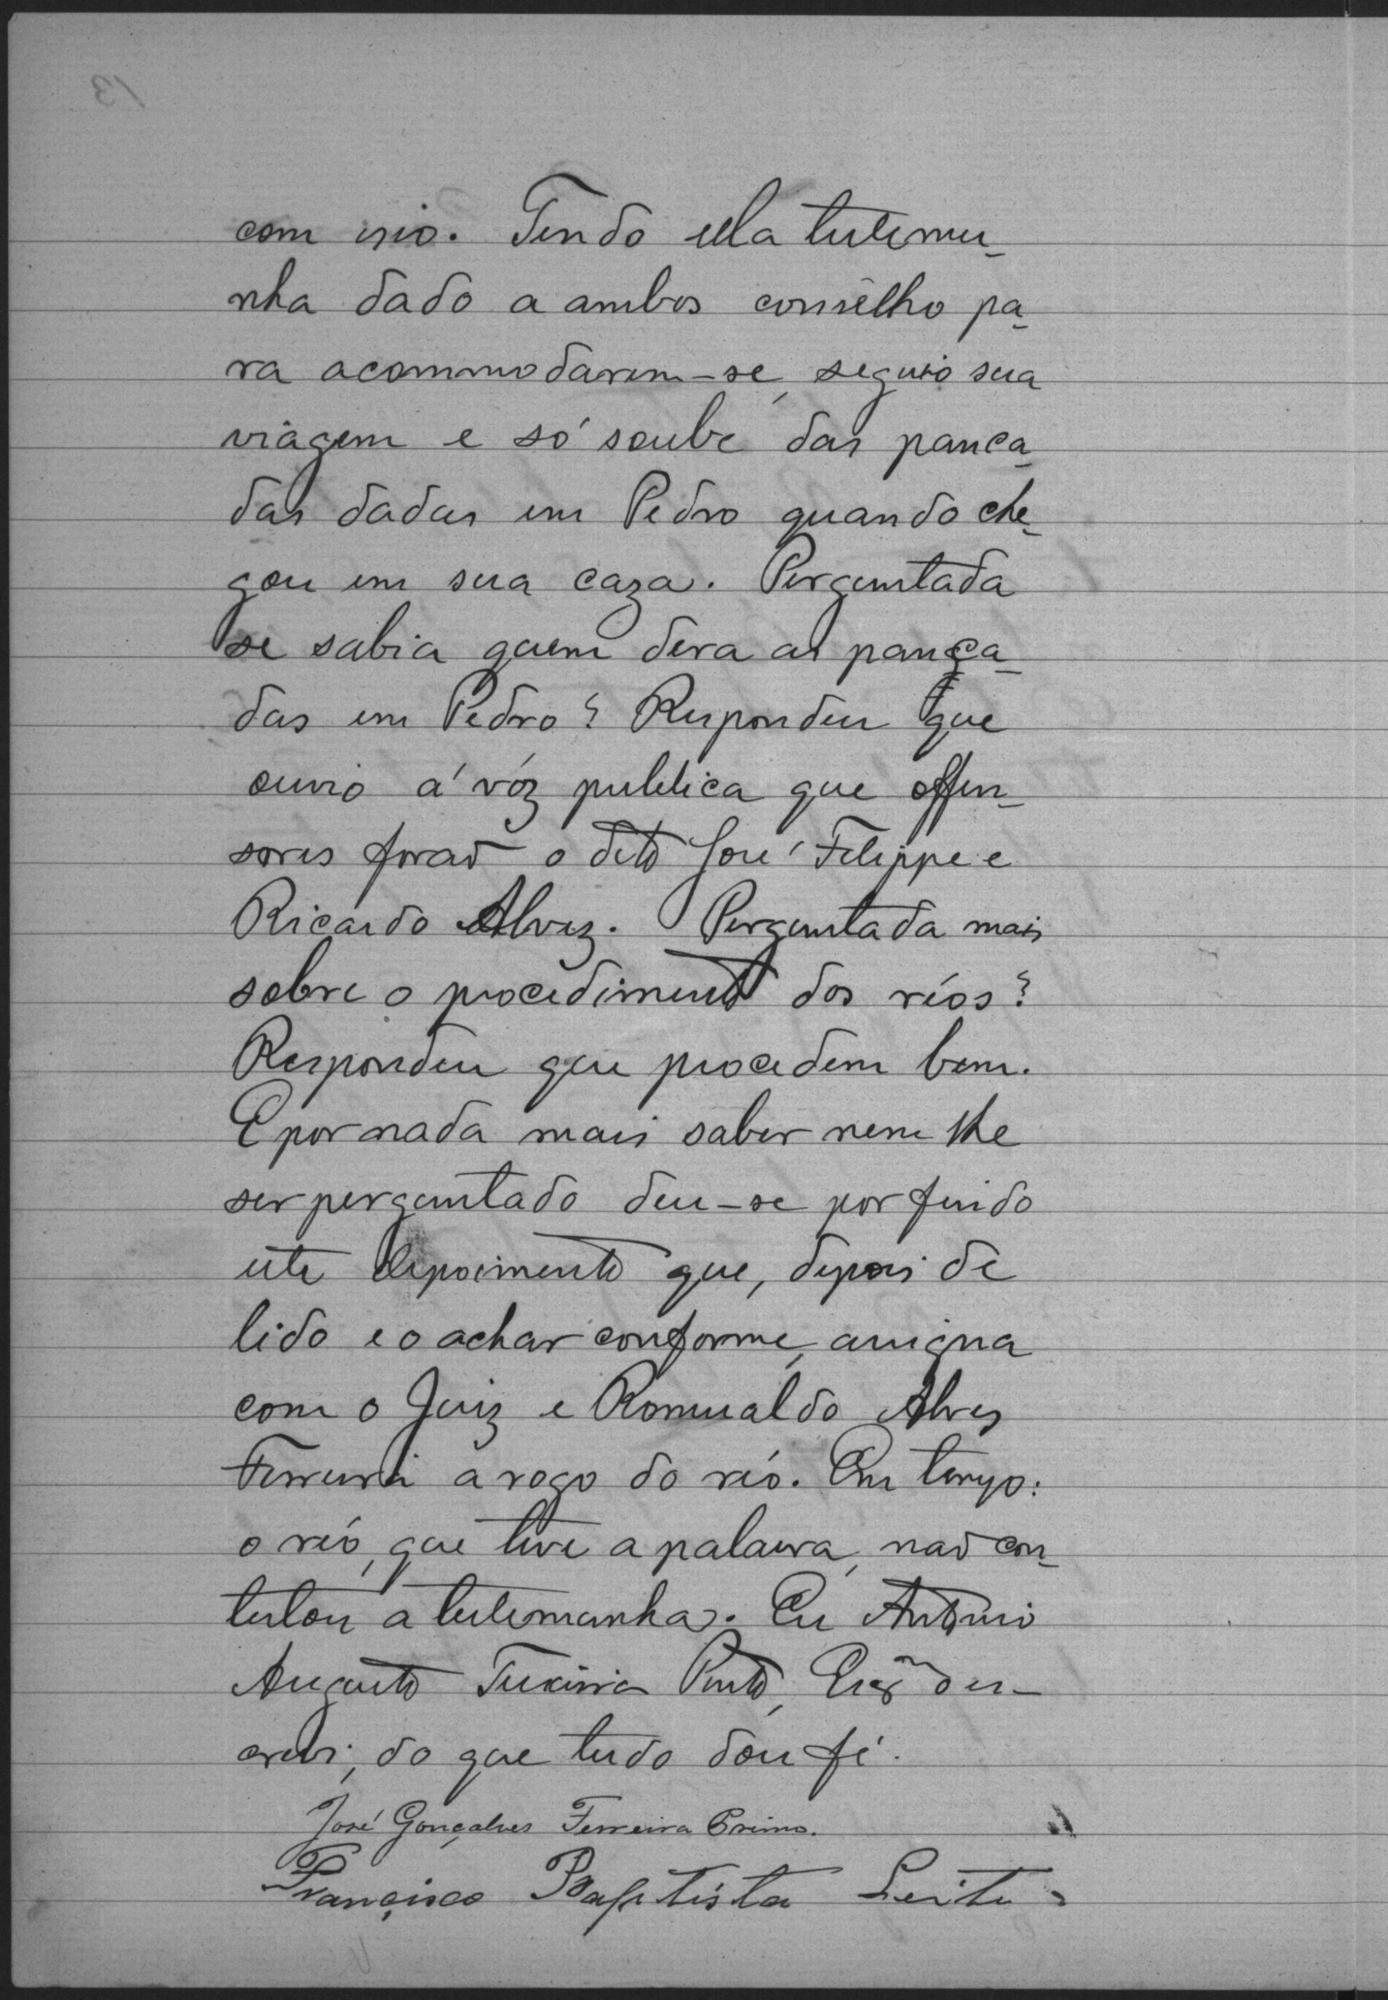 com isso. Tendo ella testemu-
nha dado a ambos conselho pa-
ra acommodarem-se, seguio sua
viagem e só soube das panca-
das dadas em Pedro quando che-
gou em sua caza. Perguntada
se sabia quem dera as panca-
das em Pedro? Respondeu que
ouvio á vóz publica que offen-
sores forão o dito José Felippe e
Ricardo Alvez. Perguntada mais
sobre o procedimento dos réos?
Respondeu que procedem bem.
E por nada mais saber nem lhe
ser perguntado deu-se por findo
este depoimento que, depois de
lido e o achar conforme, assigna
com o Juiz e Romualdo Alves
Ferreira a rogo do réo. Em tempo:
o réo, que teve a palavra, não con-
testou a testemunha. Eu Antonio
Augusto Teixeira Pinto, Escam o es-
crevi, do que tudo dou fé.
José Gonçalves Ferreira Primo.
Francisco Baptista Leite